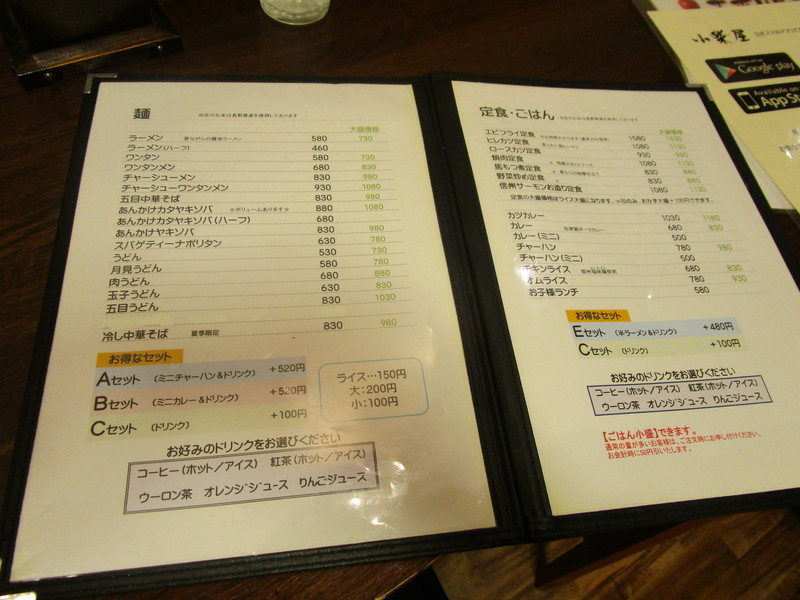 麺 当店のお米は長野県産を使用しております
大盛価格
ラーメン 昔ながらの醤油ラーメン 580 730
ラーメン(ハーフ) 460
ワンタン 580 730
ワンタンメン 680 830
チャーシューメン 830 980
チャーシューワンタンメン 930 1080
五目中華そば 830 980
あんかけカタヤキソバ ※ボリュームあります※ 880 1080
あんかけカタヤキソバ(ハーフ) 680
あんかけヤキソバ 830 980
スパゲティーナポリタン 630 780
うどん 530 730
月見うどん 580 780
肉うどん 680 880
玉子うどん 630 830
五目うどん 830 1030
冷し中華そば 夏季限定 830 980
お得なセット
Aセット (ミニチャーハン&ドリンク) +520円
Bセット (ミニカレー&ドリンク) +520円
Cセット (ドリンク) +100円
ライス…150円
大:200円
小:100円
お好みのドリンクをお選びください
コーヒー(ホット/アイス) 紅茶(ホット/アイス)
ウーロン茶 オレンジジュース りんごジュース
定食・ごはん
大盛価格
エビフライ定食 1580
ヒレカツ定食 1080 1130
ロースカツ定食 930 980
焼肉定食 1080 1130
馬もつ煮定食 830 880
野菜炒め定食 830 880
信州サーモンお造り定食 1080 1130
カツカレー 1030 1180
カレー 自家製ポークカレー 680 830
カレー(ミニ) 500
チャーハン 780 980
チャーハン(ミニ) 500
チキンライス 680 830
オムライス 780 930
お子様ランチ 580
お得なセット
Eセット (半ラーメン&ドリンク) +480円
Cセット (ドリンク) +100円
お好みのドリンクをお選びください
コーヒー(ホット/アイス) 紅茶(ホット/アイス)
ウーロン茶 オレンジジュース りんごジュース
【ごはん小盛】できます。
通常の量が多いお客様は、ご注文時にお申し付けください。
お会計時に50円引いたします。
小菜屋
Google play
Available on the
App Sto